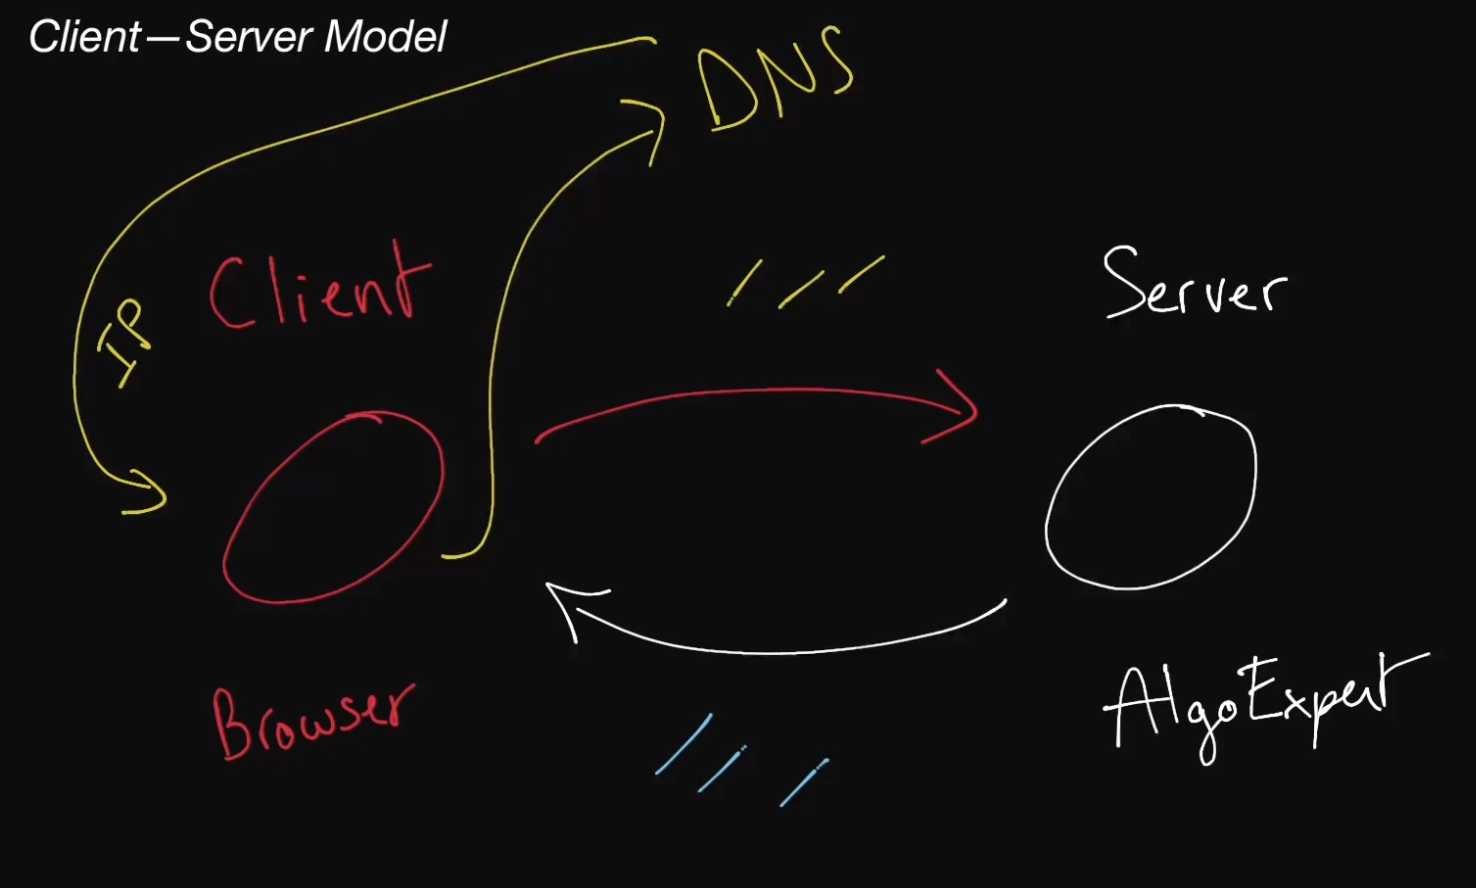 Client—Server Model
DNS
IP
Client
Server
Browser
AlgoExpert